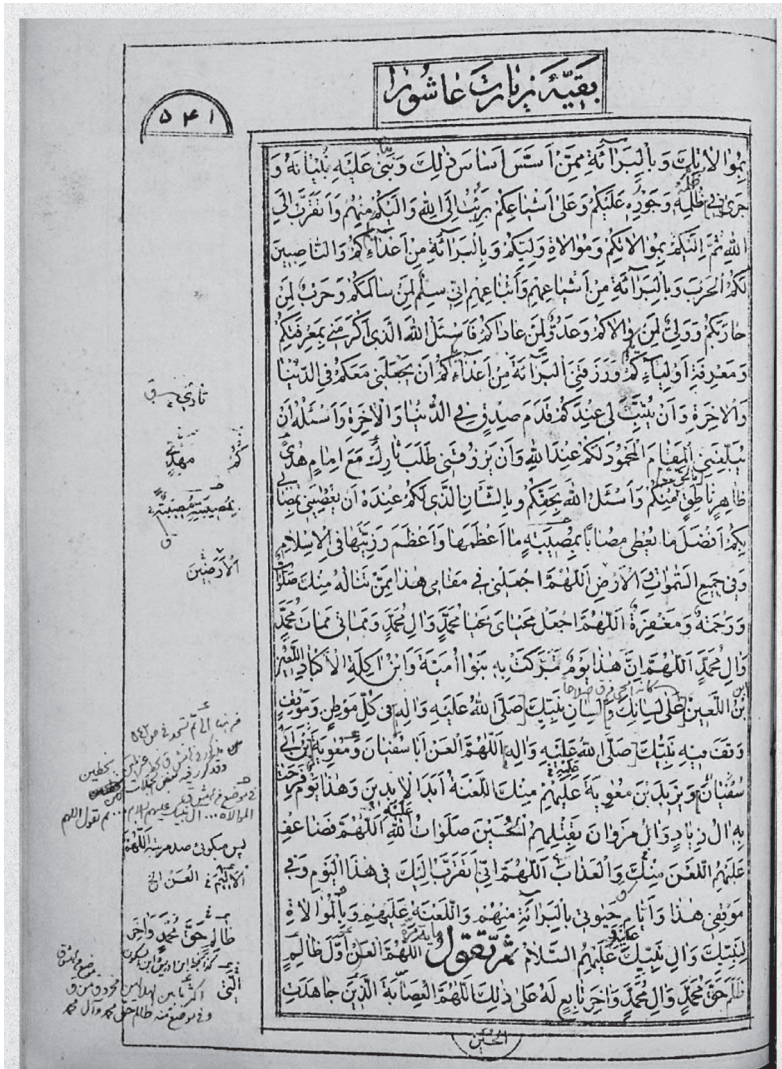 بقیّهٔ زیارت عاشورا
۵۴۱
بِمُوالاتِكَ وَبِالْبَرائَةِ مِمَّنْ اَسَّسَ اَساسَ ذٰلِكَ وَبَنىٰ عَلَيْهِ بُنْيانَهُ وَ
جَرىٰ فى ظُلْمِهِ وَجَوْرِهِ عَلَيْكُمْ وَعَلىٰ اَشْياعِكُمْ بَرِئْتُ اِلَى اللهِ وَاِلَيْكُمْ مِنْهُمْ وَاَتَقَرَّبُ اِلَى
اللهِ ثُمَّ اِلَيْكُمْ بِمُوالاتِكُمْ وَمُوالاةِ وَلِيِّكُمْ وَبِالْبَرائَةِ مِنْ اَعْدائِكُمْ وَالنّاصِبينَ
لَكُمُ الْحَرْبَ وَبِالْبَرائَةِ مِنْ اَشْياعِهِمْ وَاَتْباعِهِمْ اِنّى سِلْمٌ لِمَنْ سالَمَكُمْ وَحَرْبٌ لِمَنْ
حارَبَكُمْ وَوَلِىٌّ لِمَنْ والاكُمْ وَعَدُوٌّ لِمَنْ عاداكُمْ فَاَسْئَلُ اللهَ الَّذى اَكْرَمَنى بِمَعْرِفَتِكُمْ
وَمَعْرِفَةِ اَوْلِيائِكُمْ وَرَزَقَنِى الْبَرائَةَ مِنْ اَعْدائِكُمْ اَنْ يَجْعَلَنى مَعَكُمْ فِى الدُّنْيا
وَالْاخِرَةِ وَاَنْ يُثَبِّتَ لى عِنْدَكُمْ قَدَمَ صِدْقٍ فِى الدُّنْيا وَالْاخِرَةِ وَاَسْئَلُهُ اَنْ
يُبَلِّغَنِى الْمَقامَ الْمَحْمُودَ لَكُمْ عِنْدَ اللهِ وَاَنْ يَرْزُقَنى طَلَبَ ثارِكَ مَعَ اِمامٍ هُدىً
ظاهِرٍ ناطِقٍ مِنْكُمْ وَاَسْئَلُ اللهَ بِحَقِّكُمْ وَبِالشَّاْنِ الَّذى لَكُمْ عِنْدَهُ اَنْ يُعْطِيَنى بِمُصابى
بِكُمْ اَفْضَلَ ما يُعْطى مُصاباً بِمُصيبَتِهِ ما اَعْظَمَها وَاَعْظَمَ رَزِيَّتَها فِى الْاِسْلامِ
وَفى جَميعِ السَّمٰواتِ وَ الْاَرْضِ اَللّٰهُمَّ اجْعَلْنى فى مَقامى هٰذا مِمَّنْ تَنالُهُ مِنْكَ صَلَواتٌ
وَرَحْمَةٌ وَمَغْفِرَةٌ اَللّٰهُمَّ اجْعَلْ مَحْياىَ مَحْيا مُحَمَّدٍ وَالِ مُحَمَّدٍ وَمَماتى مَماتَ مُحَمَّدٍ
وَالِ مُحَمَّدٍ اَللّٰهُمَّ اِنَّ هٰذا يَوْمٌ تَبَرَّكَتْ بِهِ بَنُوا اُمَيَّةَ وَابْنُ اكِلَةِ الْاَكْبادِ اللَّعينُ
ابْنُ اللَّعينِ عَلىٰ لِسانِكَ وَلِسانِ نَبِيِّكَ صَلَّى اللهُ عَلَيْهِ وَالِهِ فى كُلِّ مَوْطِنٍ وَمَوْقِفٍ
وَقَفَ فيهِ نَبِيُّكَ صَلَّى اللهُ عَلَيْهِ وَالِهِ اَللّٰهُمَّ الْعَنْ اَبا سُفْيانَ وَمُعٰوِيَةَ بْنَ اَبى
سُفْيانَ وَيَزيدَ بْنَ مُعٰوِيَةَ عَلَيْهِمْ مِنْكَ اللَّعْنَةُ اَبَدَ الْابِدينَ وَهٰذا يَوْمٌ فَرِحَتْ
بِهِ الُ زِيادٍ وَالُ مَرْوانَ بِقَتْلِهِمُ الْحُسَيْنَ صَلَواتُ اللهِ عَلَيْهِ اَللّٰهُمَّ فَضاعِفْ
عَلَيْهِمُ اللَّعْنَ مِنْكَ وَالْعَذابَ اَللّٰهُمَّ اِنّى اَتَقَرَّبُ اِلَيْكَ فى هٰذَا الْيَوْمِ وَفى
مَوْقِفى هٰذا وَاَيّامِ حَيٰوتى بِالْبَرائَةِ مِنْهُمْ وَاللَّعْنَةِ عَلَيْهِمْ وَبِالْمُوالاةِ
لِنَبِيِّكَ وَالِ نَبِيِّكَ عَلَيْهِمُ السَّلامُ ثُمَّ تَقُولُ اَللّٰهُمَّ الْعَنْ اَوَّلَ ظالِمٍ
ظَلَمَ حَقَّ مُحَمَّدٍ وَالِ مُحَمَّدٍ وَاخِرَ تابِعٍ لَهُ عَلىٰ ذٰلِكَ اَللّٰهُمَّ الْعَنِ الْعِصابَةَ الَّذينَ جاهَدَتِ
الحُسَيْن
كُمْ مَهْدِيٍّ
بِمُصيبَتِهِ مُصيبَةً
الْاَرَضينَ
پس میگوئی صد مرتبه اَللّٰهُمَّ
ظالِمٍ حَقَّ مُحَمَّدٍ وَاخِرَ
الَّتى